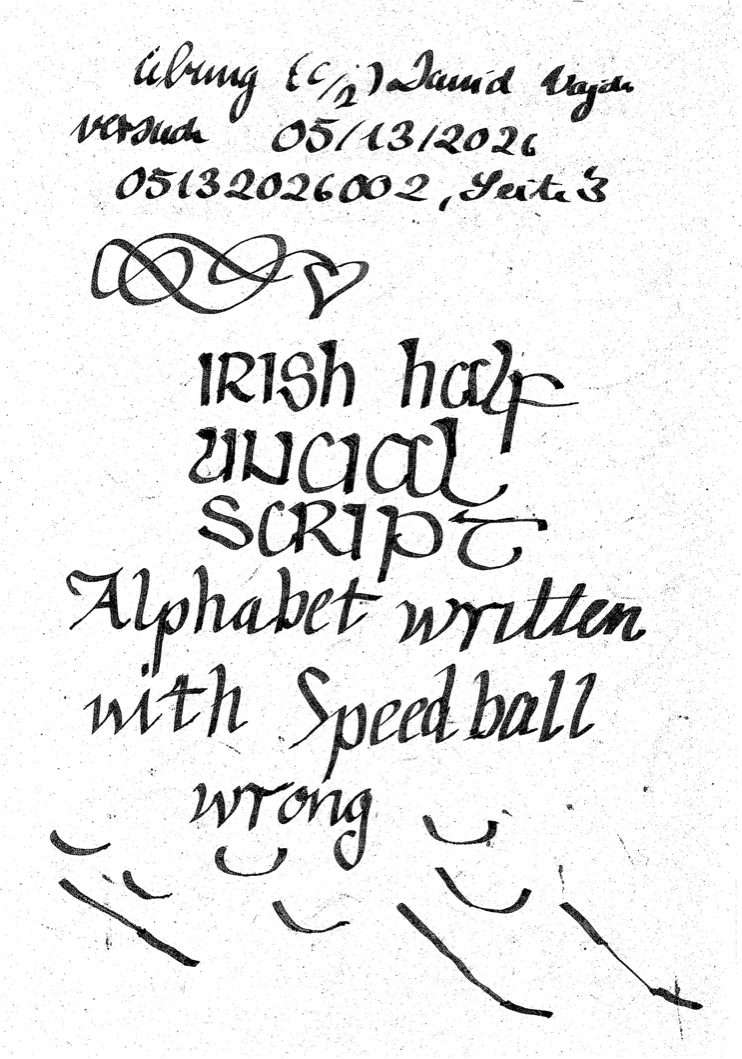 Übung (C/2) David Vajda
versuch 05/13/2026
05132026002, Seite 3
IRISh half
UNCIAL
SCRIPT
Alphabet written
with Speedball
wrong